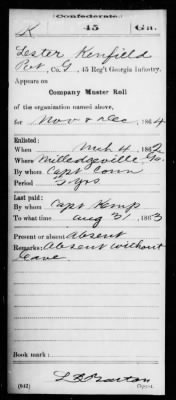 Confederate.
K 45 Ga.
Lester Kenfield
Pvt, Co. G, 45 Reg't Georgia Infantry.
Appears on
Company Muster Roll
of the organization named above,
for Nov & Dec, 1864
Enlisted:
When Mch 4, 1862
Where Milledgeville Ga.
By whom Capt Conn
Period 3 yrs
Last paid:
By whom Capt Kemp
To what time Aug 31, 1863
Present or absent Absent
Remarks: Absent without
leave
Book mark:
(642) L B Barton
Copyist.